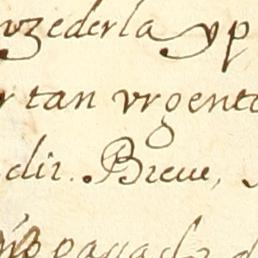 uzederla y p
r tan vrgente
dir. Breue,